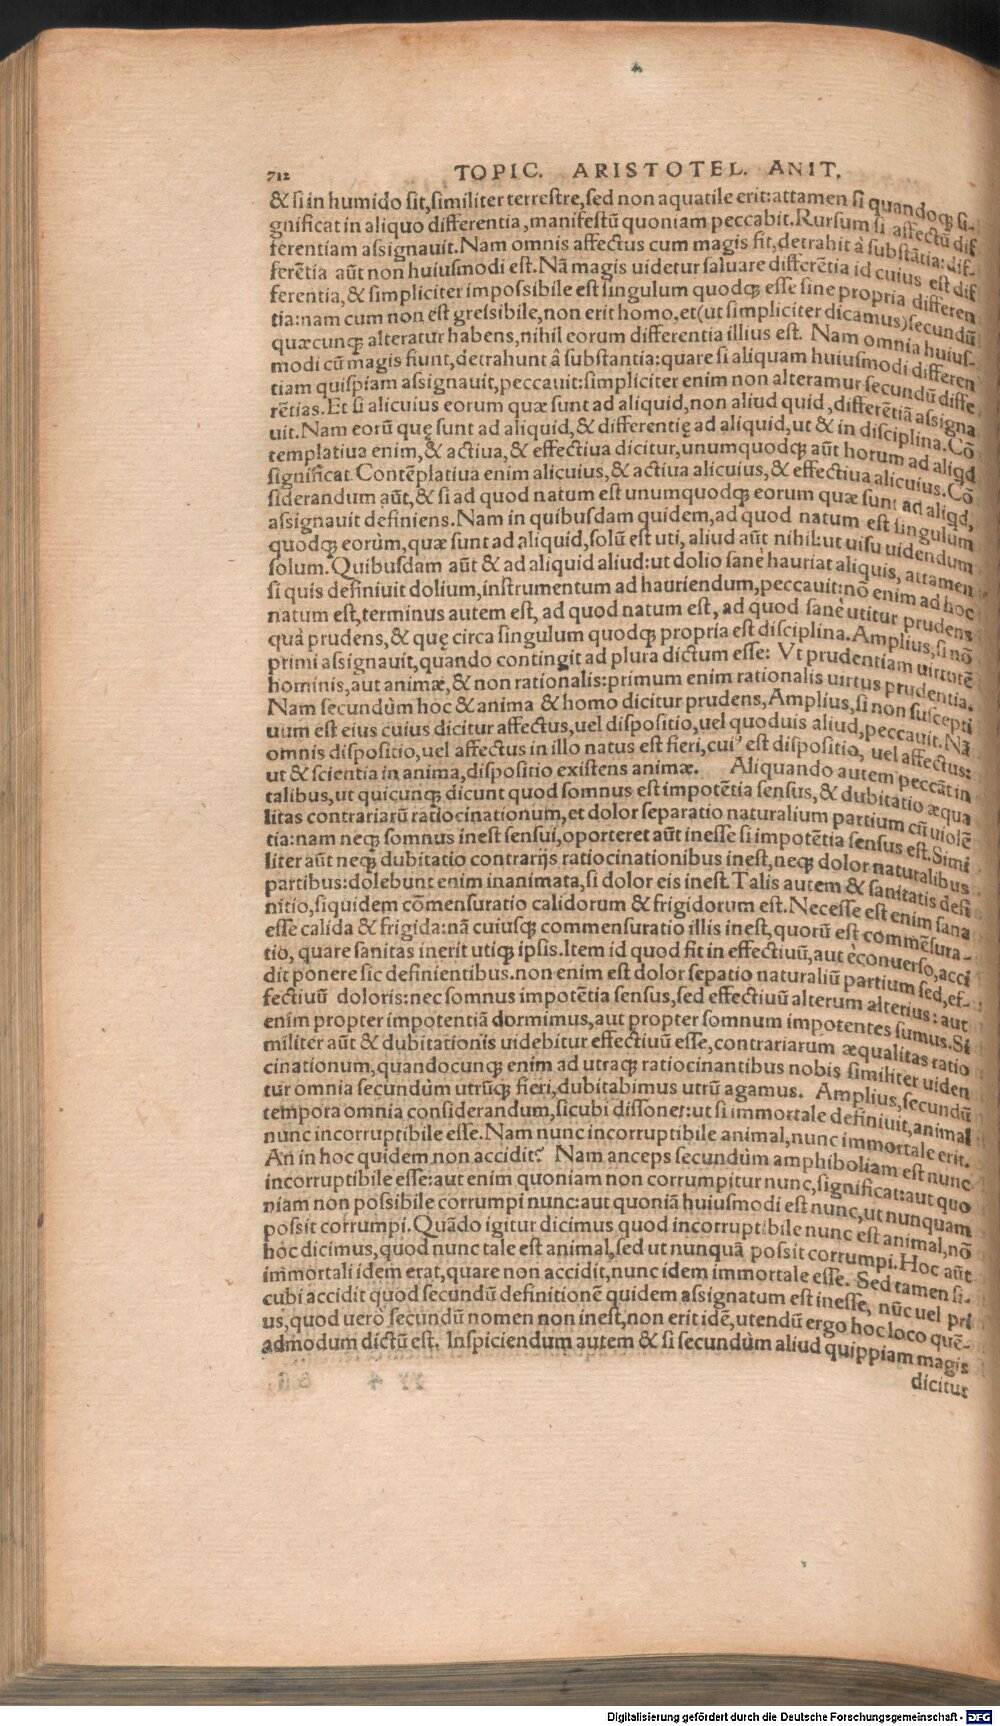 712 TOPIC. ARISTOTEL. ANIT.
& ſi in humido ſit, ſimiliter terreſtre, ſed non aquatile erit: attamen ſi quandoq; ſi-
gnificat in aliquo differentia, manifeſtũ quoniam peccabit. Rurſum ſi affectũ dif
ferentiam aſsignauit. Nam omnis affectus cum magis fit, detrahit à ſubſtãtia: dif-
ferẽtia aũt non huiuſmodi eſt. Nã magis uidetur ſaluare differẽtia id cuius eſt dif
ferentia, & ſimpliciter impoſsibile eſt ſingulum quodq; eſſe ſine propria differen
tia: nam cum non eſt greſsibile, non erit homo, et (ut ſimpliciter dicamus) ſecundũ
quæcunq; alteratur habens, nihil eorum differentia illius eſt. Nam omnia huiuſ-
modi cũ magis fiunt, detrahunt â ſubſtantia: quare ſi aliquam huiuſmodi differen
tiam quiſpiam aſsignauit, peccauit: ſimpliciter enim non alteramur ſecundũ diffe
rẽtias. Et ſi alicuius eorum quæ ſunt ad aliquid, non aliud quid, differẽtiã aſsigna
uit. Nam eorũ quę ſunt ad aliquid, & differentię ad aliquid, ut & in diſciplina. Cõ
templatiua enim, & actiua, & effectiua dicitur, unumquodq; aũt horum ad aliqd
ſignificat. Contẽplatiua enim alicuius, & actiua alicuius, & effectiua alicuius. Cõ
ſiderandum aũt, & ſi ad quod natum eſt unumquodq; eorum quæ ſunt ad aliqd,
aſsignauit definiens. Nam in quibuſdam quidem, ad quod natum eſt ſingulum
quodq; eorùm, quæ ſunt ad aliquid, ſolũ eſt uti, aliud aũt nihil: ut uiſu uidendum
ſolum. Quibuſdam aũt & ad aliquid aliud: ut dolio ſanè hauriat aliquis, attamen
ſi quis definiuit dolium, inſtrumentum ad hauriendum, peccauit: nõ enim ad hoc
natum eſt, terminus autem eſt, ad quod natum eſt, ad quod ſanè utitur prudens
quà prudens, & quę circa ſingulum quodq; propria eſt diſciplina. Amplius, ſi nõ
primi aſsignauit, quando contingit ad plura dictum eſſe: Vt prudentiam uirtutẽ
hominis, aut animæ, & non rationalis: primum enim rationalis uirtus prudentia.
Nam ſecundùm hoc & anima & homo dicitur prudens, Amplius, ſi non ſuſcepti
uum eſt eius cuius dicitur affectus, uel diſpoſitio, uel quoduis aliud, peccauit. Nã
omnis diſpoſitio, uel affectus in illo natus eſt fieri, cuiꝰ eſt diſpoſitio, uel affectus:
ut & ſcientia in anima, diſpoſitio exiſtens animæ. Aliquando autem peccãt in
talibus, ut quicunq; dicunt quod ſomnus eſt impotẽtia ſenſus, & dubitatio æqua
litas contrariarũ ratiocinationum, et dolor ſeparatio naturalium partium cũ uiolẽ
tia: nam neq; ſomnus ineſt ſenſui, oporteret aũt ineſſe ſi impotẽtia ſenſus eſt. Simi
liter aũt neq; dubitatio contrarijs ratiocinationibus ineſt, neq; dolor naturalibus
partibus: dolebunt enim inanimata, ſi dolor eis ineſt. Talis autem & ſanitatis defi
nitio, ſiquidem cõmenſuratio calidorum & frigidorum eſt. Neceſſe eſt enim ſana
eſſe calida & frigida: nã cuiuſq; commenſuratio illis ineſt, quorũ eſt commẽſura-
tio, quare ſanitas inerit utiq; ipſis. Item id quod fit in effectiuũ, aut èconuerſo, acci
dit ponere ſic definientibus. non enim eſt dolor ſepatio naturaliũ partium ſed, ef-
fectiuũ doloris: nec ſomnus impotẽtia ſenſus, ſed effectiuũ alterum alterius: aut
enim propter impotentiã dormimus, aut propter ſomnum impotentes ſumus. Si
militer aũt & dubitationis uidebitur effectiuũ eſſe, contrariarum æqualitas ratio
cinationum, quandocunq; enim ad utraq; ratiocinantibus nobis ſimiliter uiden
tur omnia ſecundùm utrũq; fieri, dubitabimus utrũ agamus. Amplius, ſecundũ
tempora omnia conſiderandum, ſicubi diſſonet: ut ſi immortale definiuit, animal
nunc incorruptibile eſſe. Nam nunc incorruptibile animal, nunc immortale erit.
An in hoc quidem non accidit? Nam anceps ſecundùm amphiboliam eſt nunc
incorruptibile eſſe: aut enim quoniam non corrumpitur nunc, ſignificat: aut quo
niam non poſsibile corrumpi nunc: aut quoniã huiuſmodi eſt nunc, ut nunquam
poſsit corrumpi. Quãdo igitur dicimus quod incorruptibile nunc eſt animal, nõ
hoc dicimus, quod nunc tale eſt animal, ſed ut nunquã poſsit corrumpi. Hoc aũt
immortali idem erat, quare non accidit, nunc idem immortale eſſe. Sed tamen ſi-
cubi accidit quod ſecundũ definitionẽ quidem aſsignatum eſt ineſſe, nũc uel pri
us, quod uerò ſecundũ nomen non ineſt, non erit idẽ, utendũ ergo hoc loco quẽ-
admodum dictũ eſt. Inſpiciendum autem & ſi ſecundùm aliud quippiam magis
dicitur
Digitalisierung gefördert durch die Deutsche Forschungsgemeinschaft - DFG